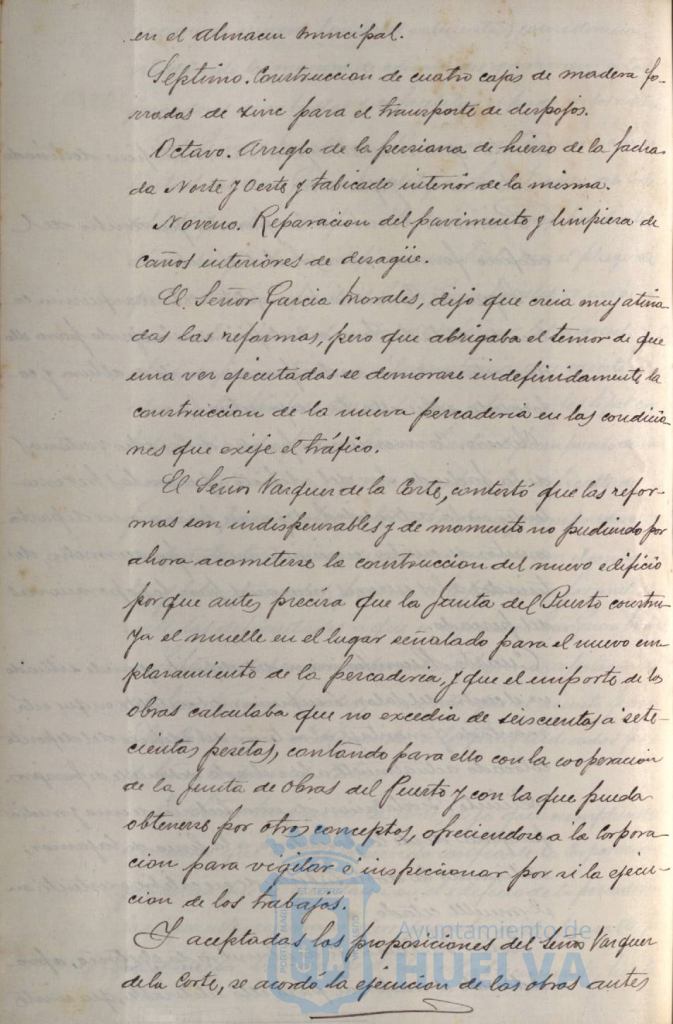 en el almacen municipal.
Septimo. Construccion de cuatro cajas de madera fo-
rradas de zinc para el transporte de despojos.
Octavo. Arreglo de la persiana de hierro de la facha-
da Norte y Oeste y tabicado interior de la misma.
Noveno. Reparacion del pavimento y limpieza de
caños interiores de desagüe.
El Señor Garcia Morales, dijo que creia muy atina-
das las reformas, pero que abrigaba el temor de que
una vez ejecutadas se demorase indefinidamente la
construccion de la nueva pescaderia en las condicio-
nes que exije el tráfico.
El Señor Vazquez de la Corte, contestó que las refor-
mas son indispensables y de momento no pudiendo por
ahora acometerse la construccion del nuevo edificio
porque antes precisa que la Junta del Puerto constru-
ya el muelle en el lugar señalado para el nuevo em-
plazamiento de la pescaderia, y que el importe de las
obras calculaba que no excedia de seiscientas a sete-
cientas pesetas, contando para ello con la cooperacion
de la Junta de Obras del Puerto y con la que pueda
obtenerse por otros conceptos, ofreciendose a la Corpora-
cion para vigilar ó inspeccionar por si la ejecu-
cion de los trabajos.
Y aceptadas las proposiciones del Señor Vazquez
de la Corte, se acordó la ejecucion de las obras antes
Ayuntamiento de
HUELVA